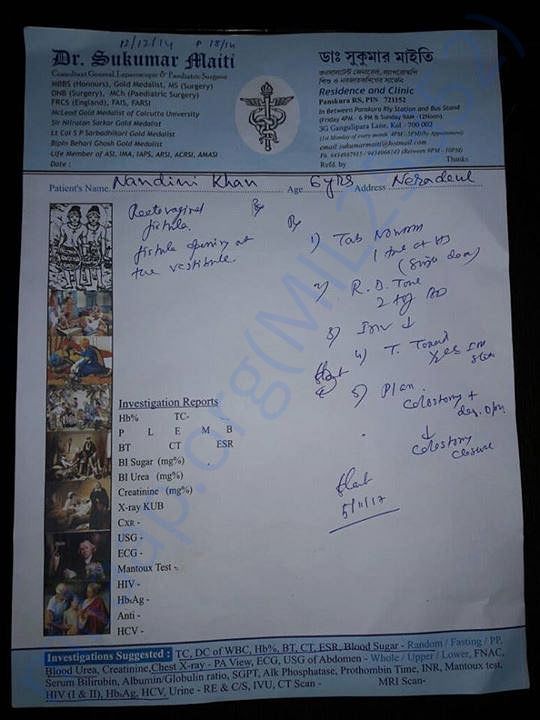 12/12/14 P 18/14
Dr. Sukumar Maiti
Consultant General, Laparoscopic & Paediatric Surgeon
MBBS (Honours), Gold Medalist, MS (Surgery)
DNB (Surgery), MCh (Paediatric Surgery)
FRCS (England), FAIS, FARSI
McLeod Gold Medalist of Calcutta University
Sir Nilratan Sarkar Gold Medalist
Lt Col S P Sarbadhikari Gold Medalist
Bipin Behari Ghosh Gold Medalist
Life Member of ASI, IMA, IAPS, ARSI, ACRSI, AMASI
Date :
ডাঃ সুকুমার মাইতি
Residence and Clinic
Panskura RS, PIN 721152
In Between Panskura Rly Station and Bus Stand
(Friday 4PM - 6 PM & Sunday 9AM - 12Noon)
3G Gangulipara Lane, Kol - 700 002
(1st Monday of every month 4PM - 5PM)By Appointment)
email: sukumarmaiti@hotmail.com
(Between 9PM - 10PM)
Refd. by Thanks
Patient's Name Nandini Khan Age 6 yrs Address Neradeul
Rectovaginal
fistula.
fistula opening at
the vestibule.
Rx
Rx
1) Tab
(Single dose)
2) R. B. Tone
2 tsf BD
3) Inv ↓
4) T.
5) Plan.
Colostomy +
↓
Colostomy
closure
5/11/17
Investigation Reports
Hb% TC-
P L E M B
BT CT ESR
Bl Sugar (mg%)
Bl Urea (mg%)
Creatinine (mg%)
X-ray KUB
CXR -
USG -
ECG -
Mantoux Test -
HIV -
HbsAg -
Anti -
HCV -
Investigations Suggested : TC, DC of WBC, Hb%, BT, CT, ESR, Blood Sugar - Random / Fasting / PP,
Blood Urea, Creatinine, Chest X-ray - PA View, ECG, USG of Abdomen - Whole / Upper / Lower, FNAC,
Serum Bilirubin, Albumin/Globulin ratio, SGPT, Alk Phosphatase, Prothombin Time, INR, Mantoux test,
HIV (I & II), HbsAg, HCV, Urine - RE & C/S, IVU, CT Scan - MRI Scan-